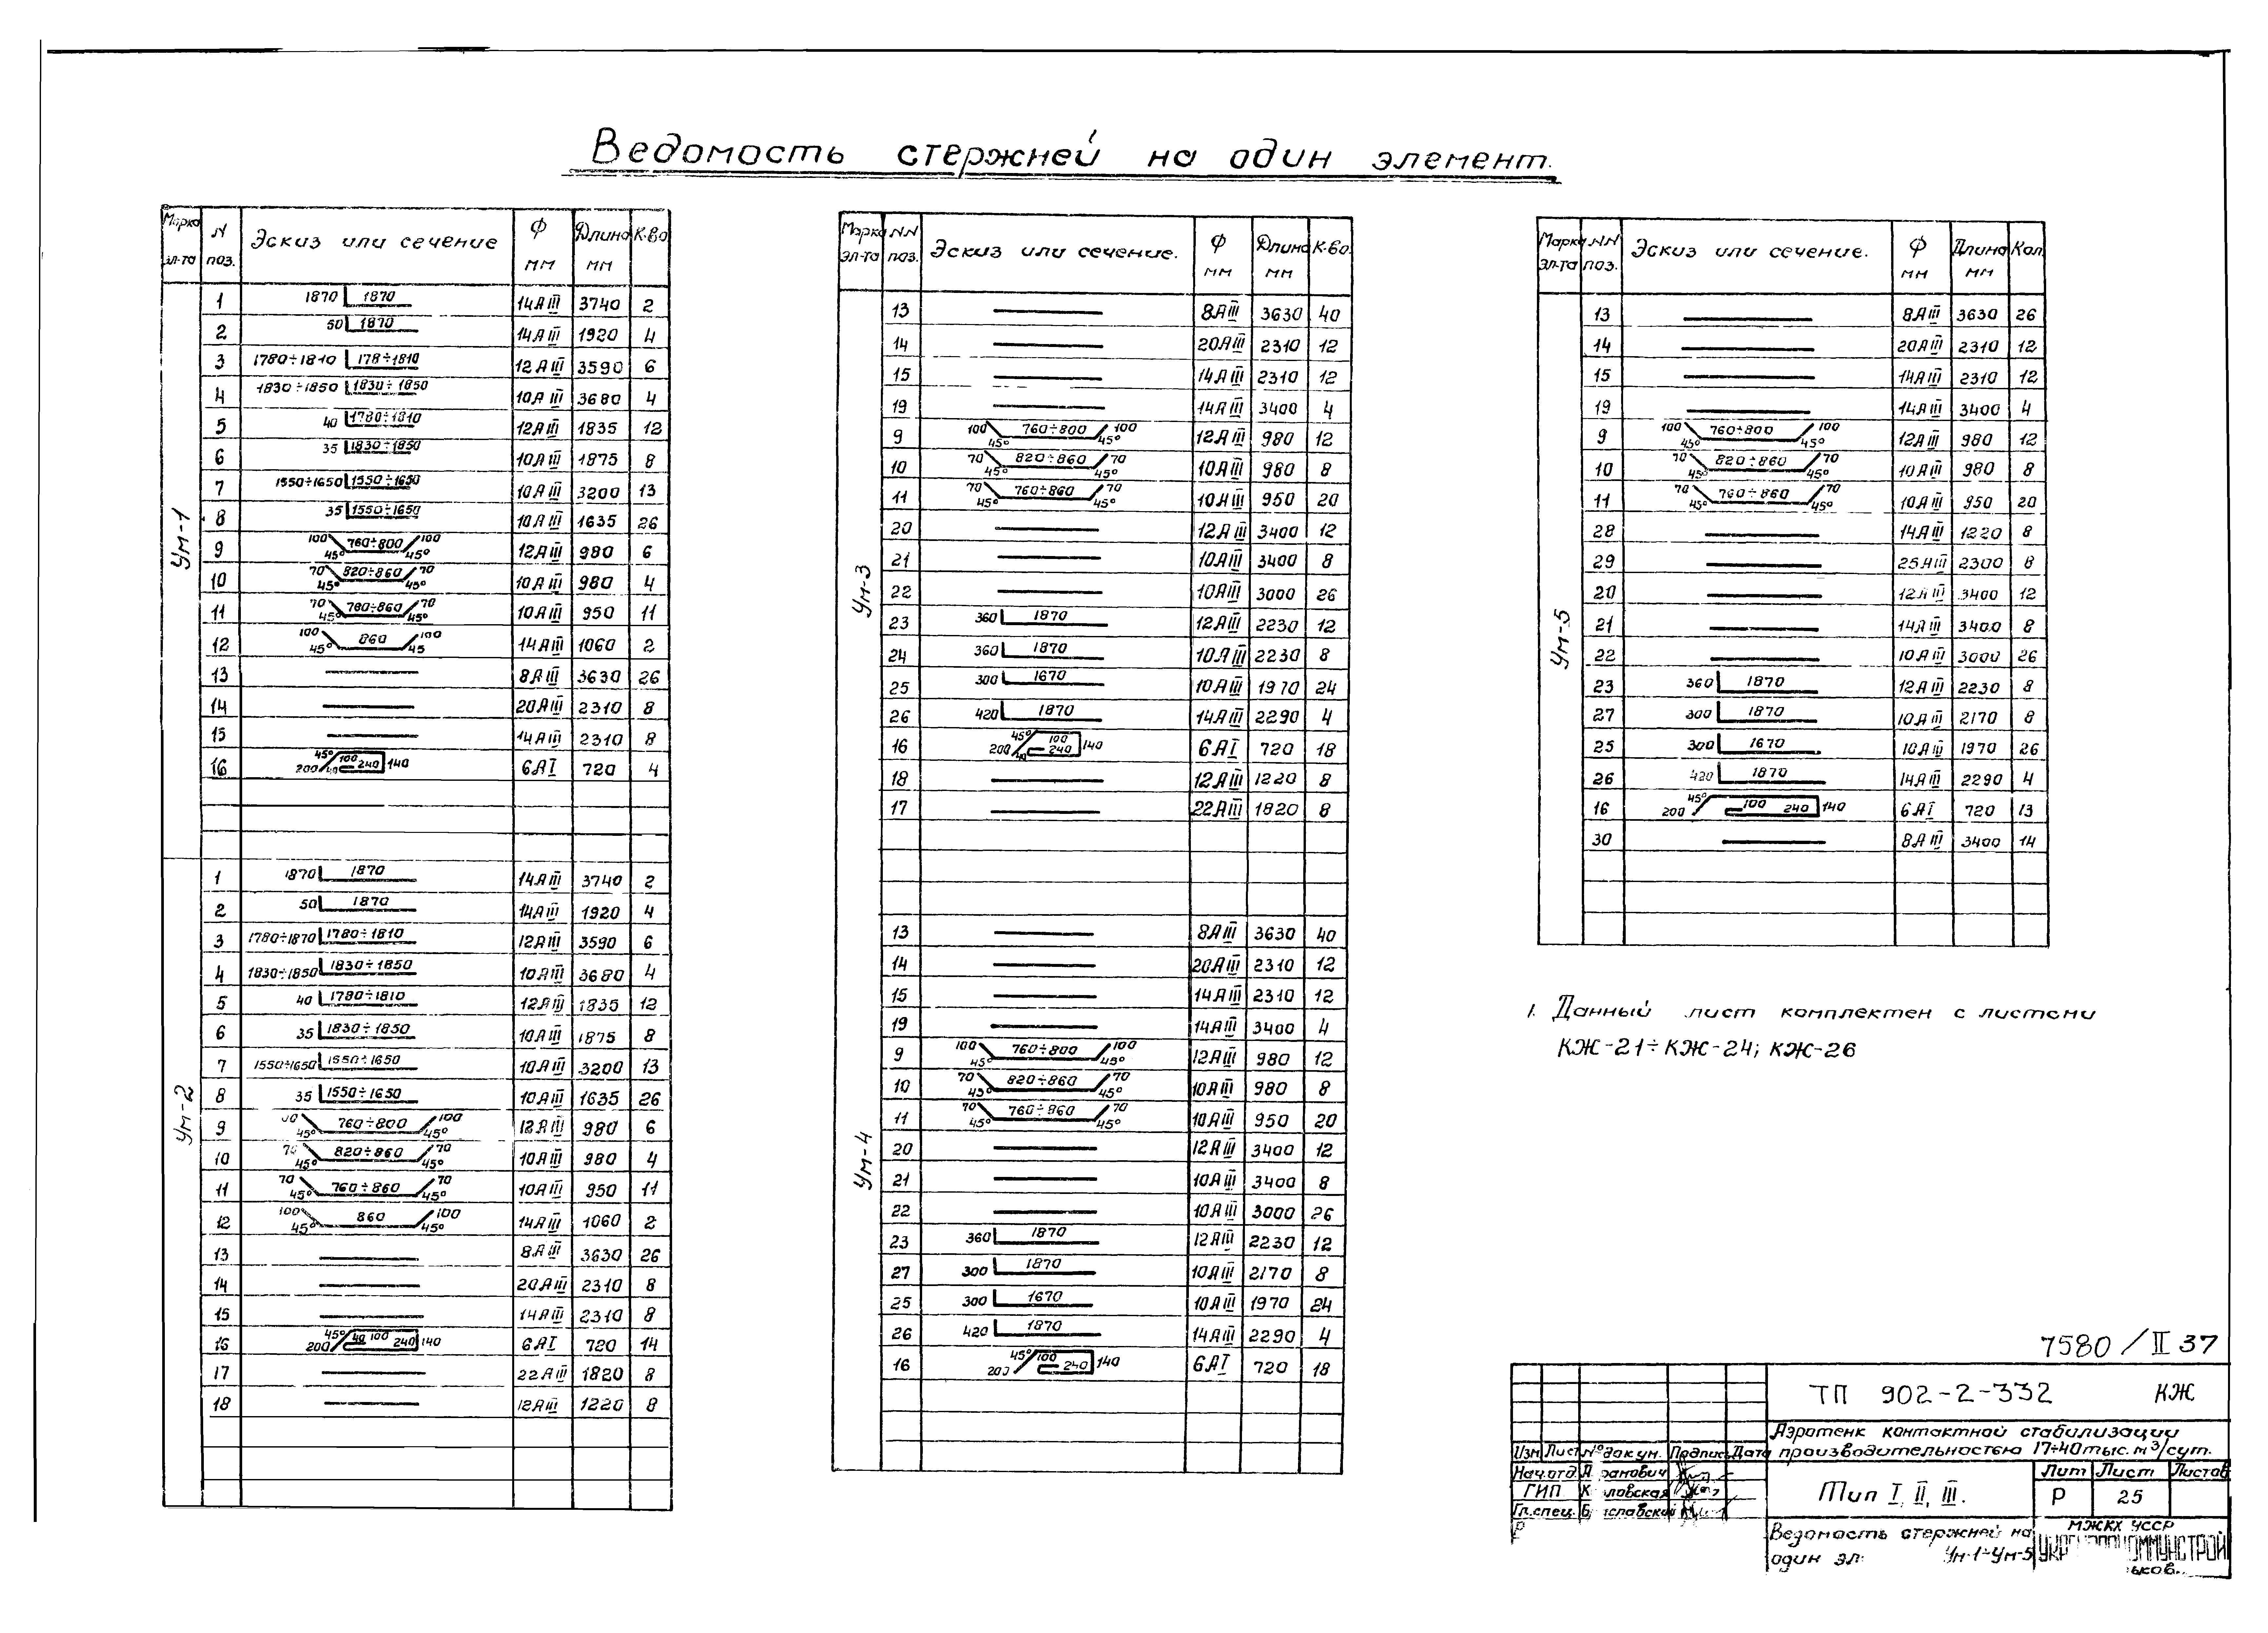 Ведомость стержней на один элемент.
Марка эл-та N поз. Эскиз или сечение Ф мм Длина мм К-во
Ум-1
1 1870 1870 14АIII 3740 2
2 50 1870 14АIII 1920 4
3 1780÷1810 178÷1810 12АIII 3590 6
4 1830÷1850 1830÷1850 10АIII 3680 4
5 40 1780÷1810 12АIII 1835 12
6 35 1830÷1850 10АIII 1875 8
7 1550÷1650 1550÷1650 10АIII 3200 13
8 35 1550÷1650 10АIII 1635 26
9 100 45° 760÷800 100 45° 12АIII 980 6
10 70 45° 820÷860 70 45° 10АIII 980 4
11 70 45° 780÷860 70 45° 10АIII 950 11
12 100 45° 860 100 45 14АIII 1060 2
13 8АIII 3630 26
14 20АIII 2310 8
15 14АIII 2310 8
16 45° 200 40 100 240 140 6АI 720 4
Ум-2
1 1870 1870 14АIII 3740 2
2 50 1870 14АIII 1920 4
3 1780÷1870 1780÷1810 12АIII 3590 6
4 1830÷1850 1830÷1850 10АIII 3680 4
5 40 1780÷1810 12АIII 1835 12
6 35 1830÷1850 10АIII 1875 8
7 1550÷1650 1550÷1650 10АIII 3200 13
8 35 1550÷1650 10АIII 1635 26
9 45° 760÷800 100 45° 12АIII 980 6
10 70 45° 820÷860 70 45° 10АIII 980 4
11 70 45° 760÷860 70 45° 10АIII 950 11
12 100 45° 860 100 45° 14АIII 1060 2
13 8АIII 3630 26
14 20АIII 2310 8
15 14АIII 2310 8
16 45° 200 40 100 240 140 6АI 720 14
17 22АIII 1820 8
18 12АIII 1220 8
Марка эл-та NN поз. Эскиз или сечение. Ф мм Длина мм К-во.
Ум-3
13 8АIII 3630 40
14 20АIII 2310 12
15 14АIII 2310 12
19 14АIII 3400 4
9 100 45° 760÷800 100 45° 12АIII 980 12
10 70 45° 820÷860 70 45° 10АIII 980 8
11 70 45° 760÷860 70 45° 10АIII 950 20
20 12АIII 3400 12
21 10АIII 3400 8
22 10АIII 3000 26
23 360 1870 12АIII 2230 12
24 360 1870 10АIII 2230 8
25 300 1670 10АIII 1970 24
26 420 1870 14АIII 2290 4
16 45° 200 40 100 240 140 6АI 720 18
18 12АIII 1220 8
17 22АIII 1820 8
Ум-4
13 8АIII 3630 40
14 20АIII 2310 12
15 14АIII 2310 12
19 14АIII 3400 4
9 100 45° 760÷800 100 45° 12АIII 980 12
10 70 45° 820÷860 70 45° 10АIII 980 8
11 70 45° 760÷860 70 45° 10АIII 950 20
20 12АIII 3400 12
21 10АIII 3400 8
22 10АIII 3000 26
23 360 1870 12АIII 2230 12
27 300 1870 10АIII 2170 8
25 300 1670 10АIII 1970 24
26 420 1870 14АIII 2290 4
16 45° 200 100 240 140 6АI 720 18
Марка эл-та NN поз. Эскиз или сечение. Ф мм Длина мм Кол.
Ум-5
13 8АIII 3630 26
14 20АIII 2310 12
15 14АIII 2310 12
19 14АIII 3400 4
9 100 45° 760÷800 100 45° 12АIII 980 12
10 70 45° 820÷860 70 45° 10АIII 980 8
11 70 45° 760÷860 70 45° 10АIII 950 20
28 14АIII 1220 8
29 25АIII 2300 8
20 12АIII 3400 12
21 14АIII 3400 8
22 10АIII 3000 26
23 360 1870 12АIII 2230 8
27 300 1870 10АIII 2170 8
25 300 1670 10АIII 1970 26
26 420 1870 14АIII 2290 4
16 45° 200 100 240 140 6АI 720 13
30 8АIII 3400 14
1. Данный лист комплектен с листами
КЖ-21÷КЖ-24; КЖ-26
7580/II 37
ТП 902-2-332 КЖ
Аэротенк контактной стабилизации
производительностью 17÷40 тыс. м³/сут.
Изм Лист N° докум. Подпись Дата
Нач.отд.
ГИП
Гл.спец.
Тип I, II, III.
Лит Лист Листов
Р 25
Ведомость стержней на
один эл. Ум-1÷Ум-5
МЖКХ УССР